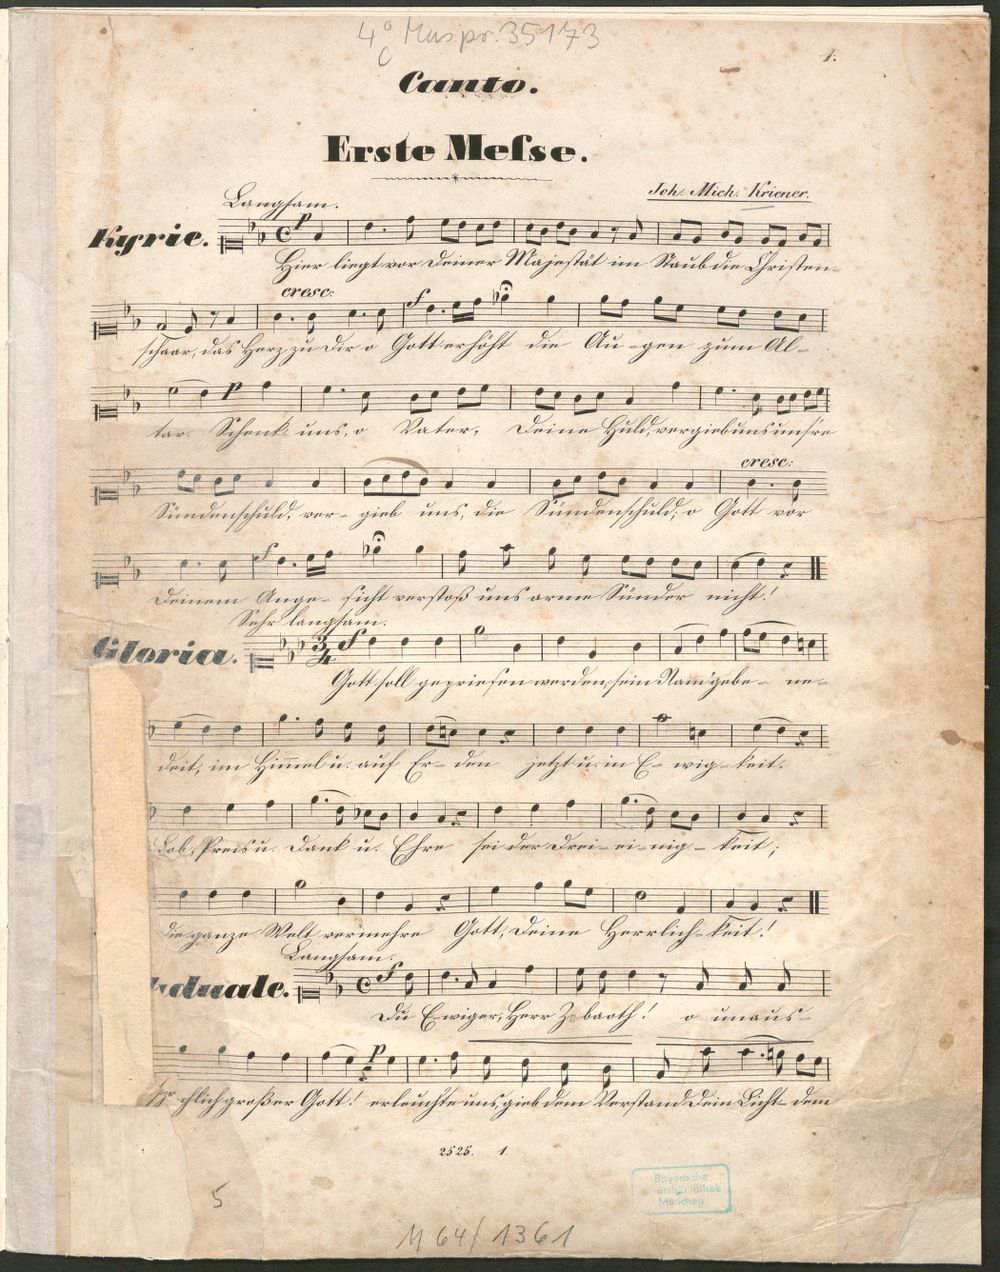 4° Mus.pr. 35173
1.
Canto.
Erste Meſse.
Joh. Mich. Kriener.
Langsam.
Kyrie.
p
Hier liegt vor deiner Majestät im Staub die Christen-
cresc:
f
schaar, das Herz zu dir o Gott erhöht die Au-gen zum Al-
p
tar. Schenk uns, o Vater, deine Huld, vergieb uns unsre
cresc:
Sündenschuld, ver-gieb uns, die Sündenschuld; o Gott vor
f
deinem Ange-sicht verstoß uns arme Sünder nicht!
Sehr langsam.
Gloria.
3/4 f
Gott soll gepriesen werden, sein Nam' gebe-ne-
deit, im Himmel u. auf Er-den jetzt u. in E-wig-keit.
Lob, Preis u. Dank u. Ehre sei der Drei-ei-nig-keit;
die ganze Welt vermehre Gott, deine Herrlich-keit!
Langsam.
duale.
f
Du E-wiger, Herr Zebaoth! o unaus-
p
chlich großer Gott! erleuchte uns, gieb dem Verstand dein Licht- dem
2525. 1.
Bayerische
Staatsbibliothek
München
5
M 64/1361